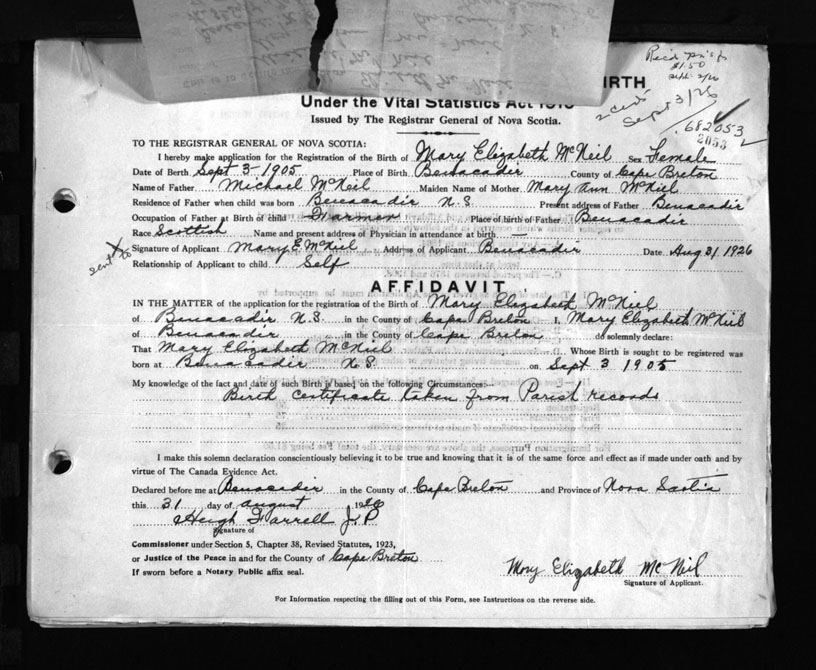 Rec'd
$1.50
Sept 3/26
2 cents
682053
2053
BIRTH
Under the Vital Statistics Act
Issued by The Registrar General of Nova Scotia.
TO THE REGISTRAR GENERAL OF NOVA SCOTIA:
I hereby make application for the Registration of the Birth of Mary Elizabeth McNeil Sex Female
Date of Birth Sept 3 - 1905 Place of Birth Benacadir County of Cape Breton
Name of Father Michael McNeil Maiden Name of Mother Mary Ann McNiel
Residence of Father when child was born Benacadir N.S. Present address of Father Benacadir
Occupation of Father at Birth of child Farmer Place of birth of Father Benacadir
Race Scottish Name and present address of Physician in attendance at birth —
sent to X Signature of Applicant Mary E McNiel Address of Applicant Benacadir Date Aug 31, 1926
Relationship of Applicant to child Self
AFFIDAVIT
IN THE MATTER of the application for the registration of the Birth of Mary Elizabeth McNiel
of Benacadir N.S. in the County of Cape Breton I, Mary Elizabeth McNiel
of Benacadir in the County of Cape Breton do solemnly declare:
That Mary Elizabeth McNiel Whose Birth is sought to be registered was
born at Benacadir N.S. on Sept 3 1905
My knowledge of the fact and date of such Birth is based on the following Circumstances:—
Birth Certificate taken from Parish records
I make this solemn declaration conscientiously believing it to be true and knowing that it is of the same force and effect as if made under oath and by
virtue of The Canada Evidence Act.
Declared before me at Benacadir in the County of Cape Breton and Province of Nova Scotia
this 31 day of August 1926
Farrell J P
Signature of
Commissioner under Section 5, Chapter 38, Revised Statutes, 1923,
or Justice of the Peace in and for the County of Cape Breton
If sworn before a Notary Public affix seal.
Mary Elizabeth McNeil
Signature of Applicant.
For Information respecting the filling out of this Form, see Instructions on the reverse side.